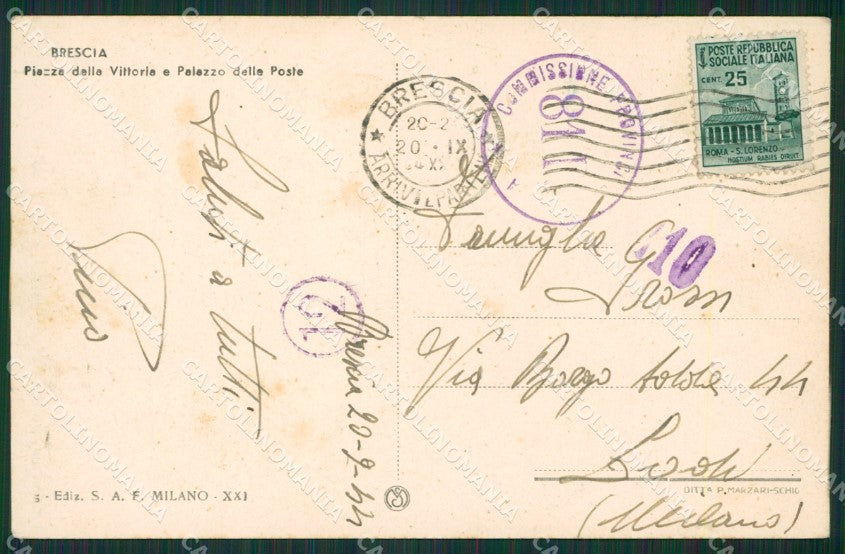 BRESCIA
Piazza della Vittoria e Palazzo delle Poste
Saluti a tutti
Brescia 20-9-44
5 - Ediz. S. A. F. MILANO - XXI
BRESCIA
20-2
20 · IX
ARRIVI E PARTENZE
COMMISSIONE PROVINC
10
12
POSTE REPUBBLICA
SOCIALE ITALIANA
CENT. 25
ROMA - S. LORENZO
HOSTIUM RABIES DIRUIT
Famiglia Grossi
Via Borgo Adda 44
Lodi
DITTA P. MARZARI-SCHIO
(Milano)
CARTOLINOMANIA